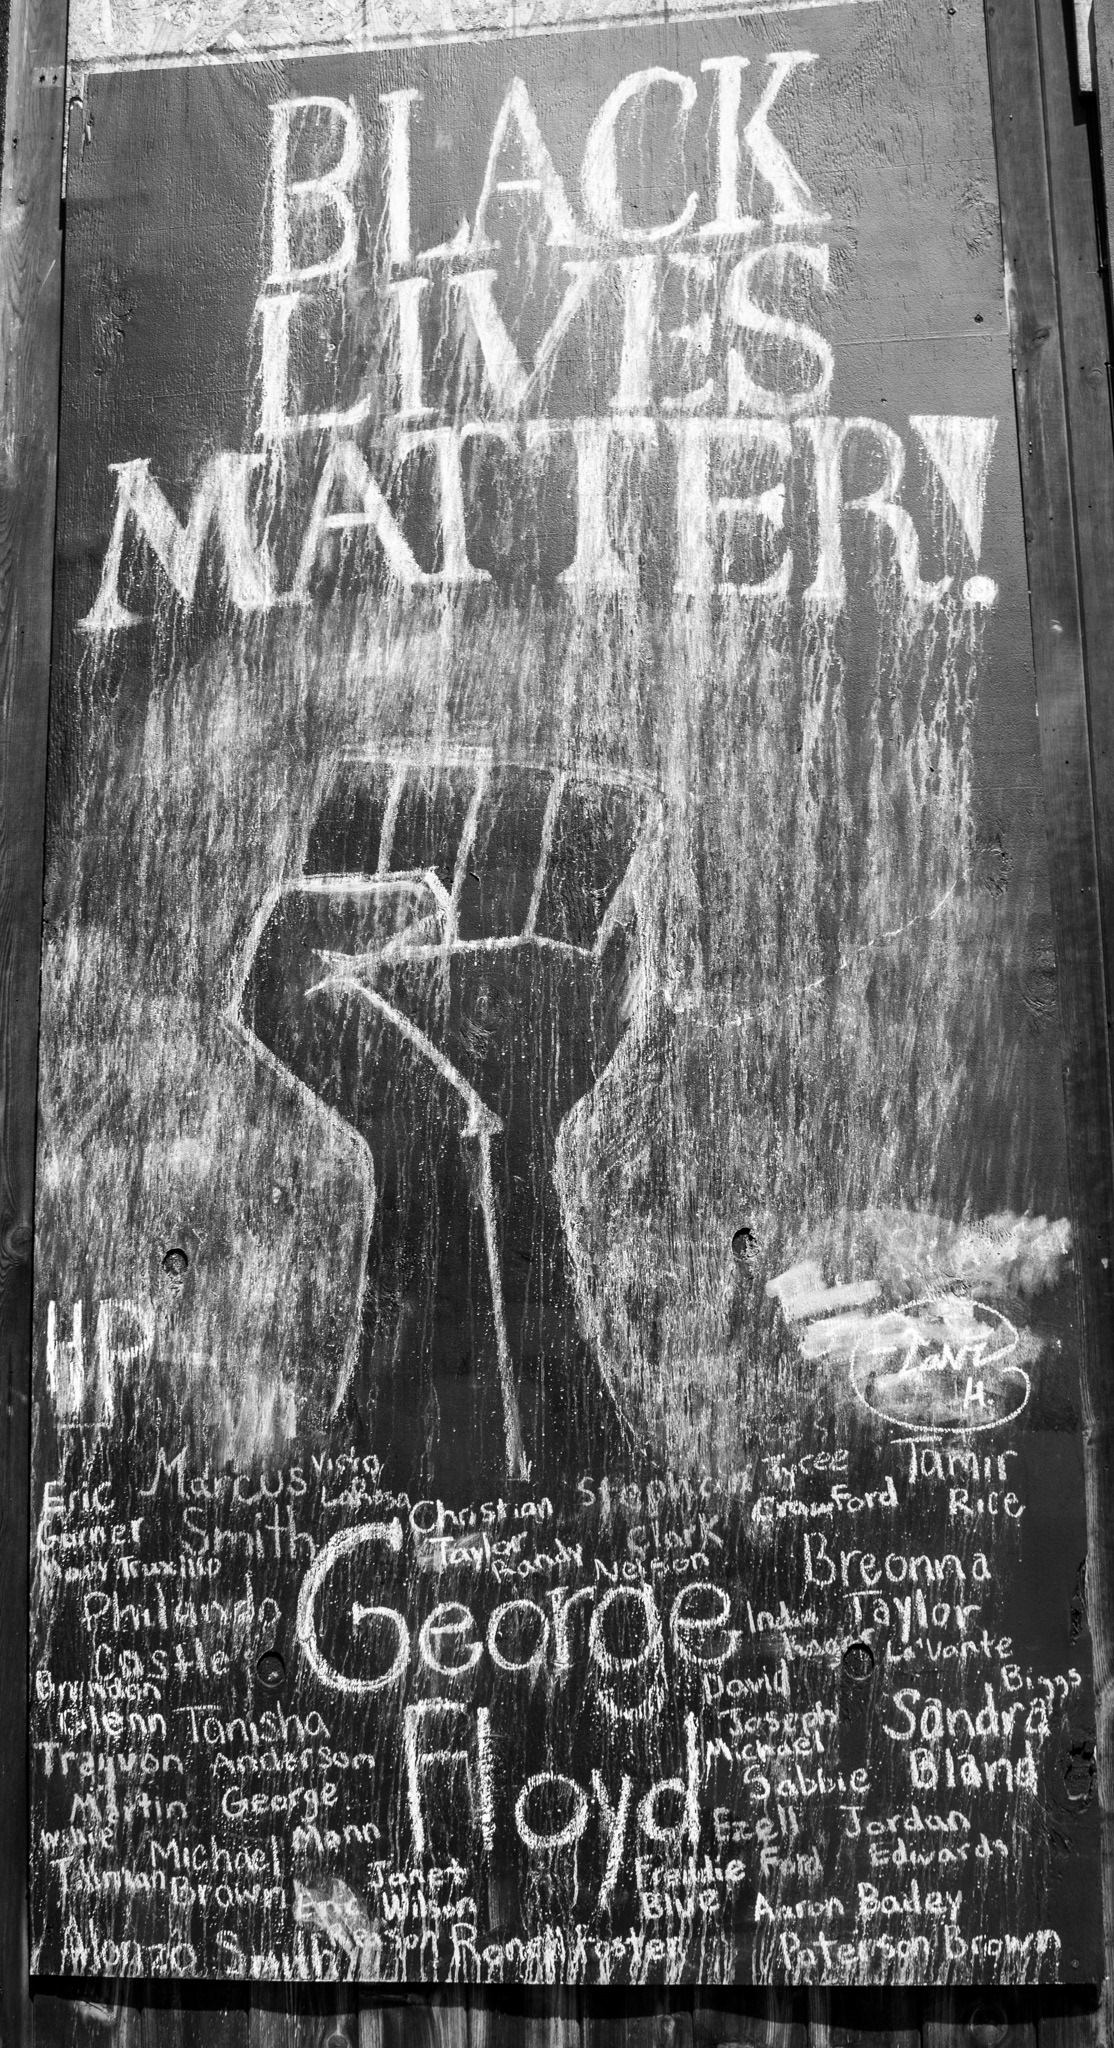 BLACK
LIVES
MATTER!
HP
H.
Eric
Garner
Marcus
Smith
Christian
Taylor
Randy Nelson
Stephon
Clark
Tyree
Crawford
Tamir
Rice
Truxillo
Philando
Castle
George
Floyd
Breonna
Taylor
India
Kager
La'Vante
Biggs
Brandon
Glenn
Tanisha
Anderson
David
Joseph
Sandra
Bland
Trayvon
Martin
George
Mann
Michael
Sabbie
Willie
Tillman
Michael
Brown
Janet
Wilson
Ezell
Ford
Jordan
Edwards
Freddie
Blue
Aaron Bailey
Alonzo Smith
Ronell Foster
Paterson Brown